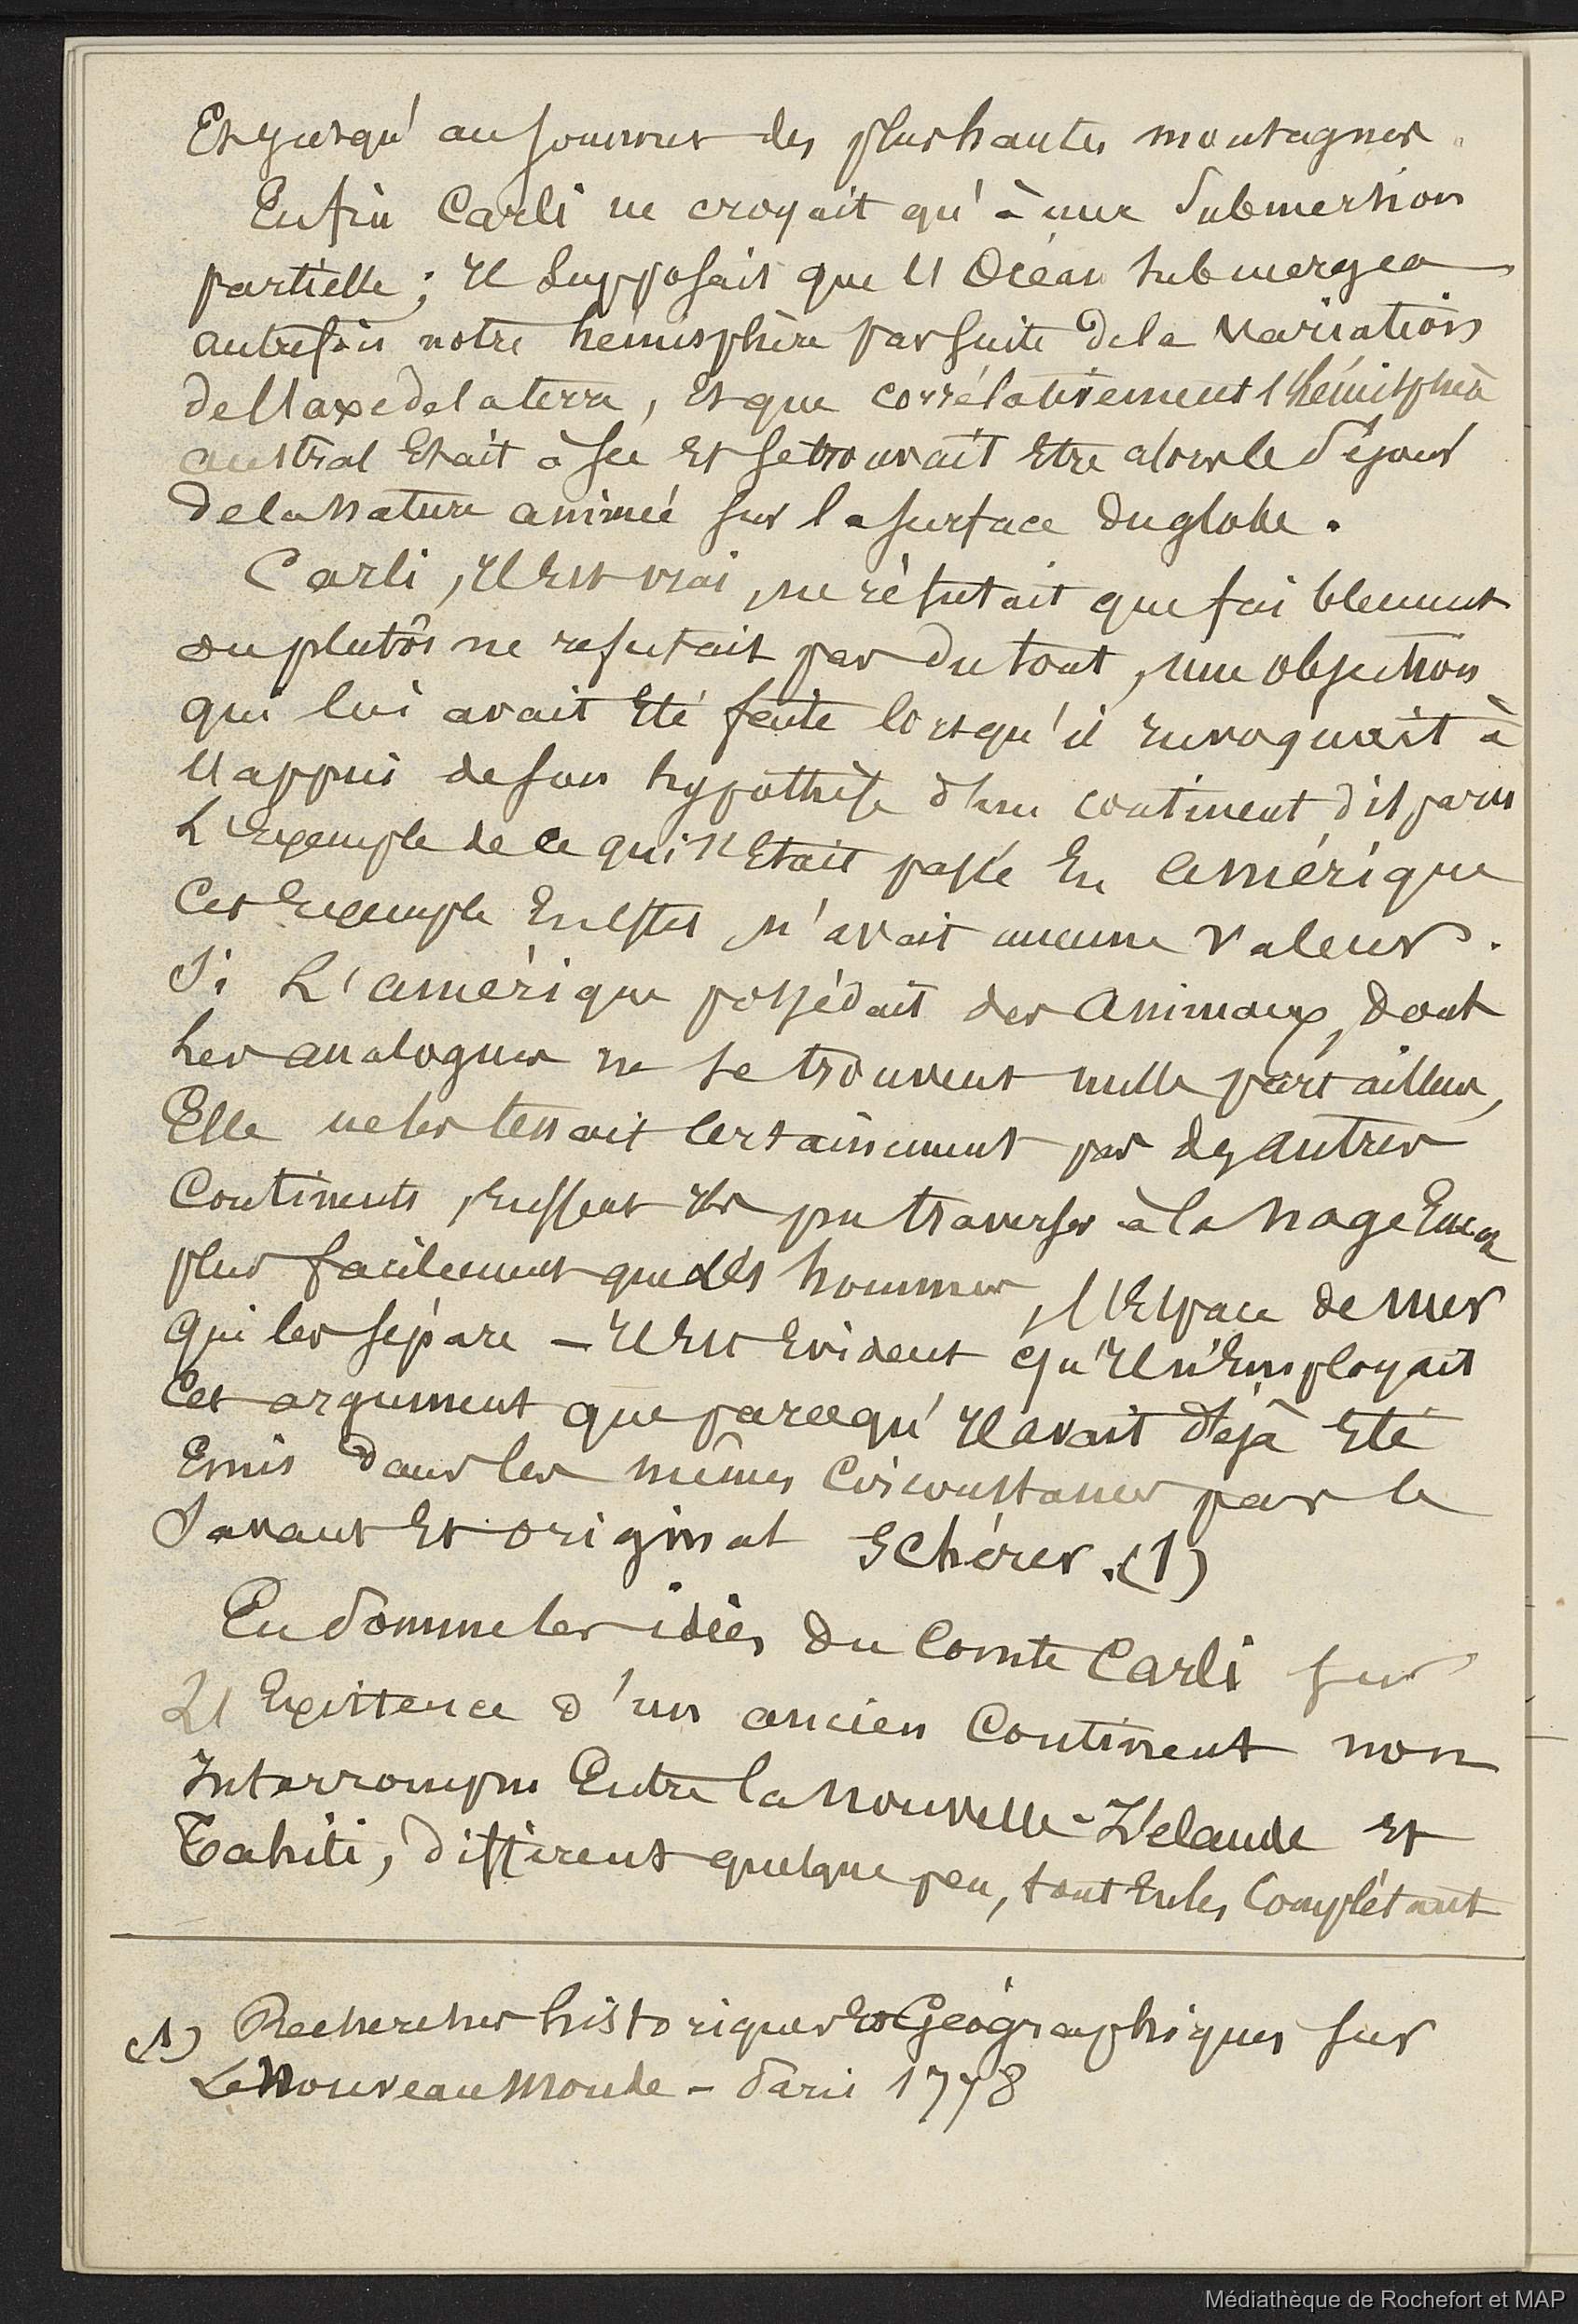 Et jusqu'au sommet des plus hautes montagnes.
Enfin Carli ne croyait qu'à une Submersion
partielle ; Il Supposait que l'Océan submergea
autrefois notre hémisphère par suite de la variation
de l'axe de la terre, Et que corrélativement l'hémisphère
austral Etait à sec Et se trouvait Etre alors le Séjour
de la nature animée sur la surface du globe.
Carli, Il Est vrai, ne réfutait que faiblement
ou plutôt ne refutait pas du tout, une objection
qui lui avait Eté faite lorsqu'il invoquait à
l'appui de son hypothèse d'un continent disparu
L'Exemple de ce qui s'Etait passé En Amérique
Cet Exemple En effet, n'avait aucune valeur.
Si L'amérique possédait des Animaux, dont
Les analogues ne se trouvent nulle part ailleurs,
Elle ne les tenait certainement pas des autres
Continents, Eussent Ils pu traverser à la nage Encor
plus facilement que les hommes, l'Espace de mer
qui les sépare - Il Est Evident qu'Il n'Employait
Cet argument que parcequ'Il avait déjà Eté
Emis dans les mêmes Circonstances par le
Savant Et original Schérer. (1)
En Somme les idées du Comte Carli sur
L'Existence d'un ancien Continent non
Interrompu Entre la Nouvelle-Zélande Et
Tahiti, diffèrent quelque peu, tout En les Complétant
(1) Recherches historiques Et Géographiques sur
Le Nouveau Monde - Paris 1778
Médiathèque de Rochefort et MAP